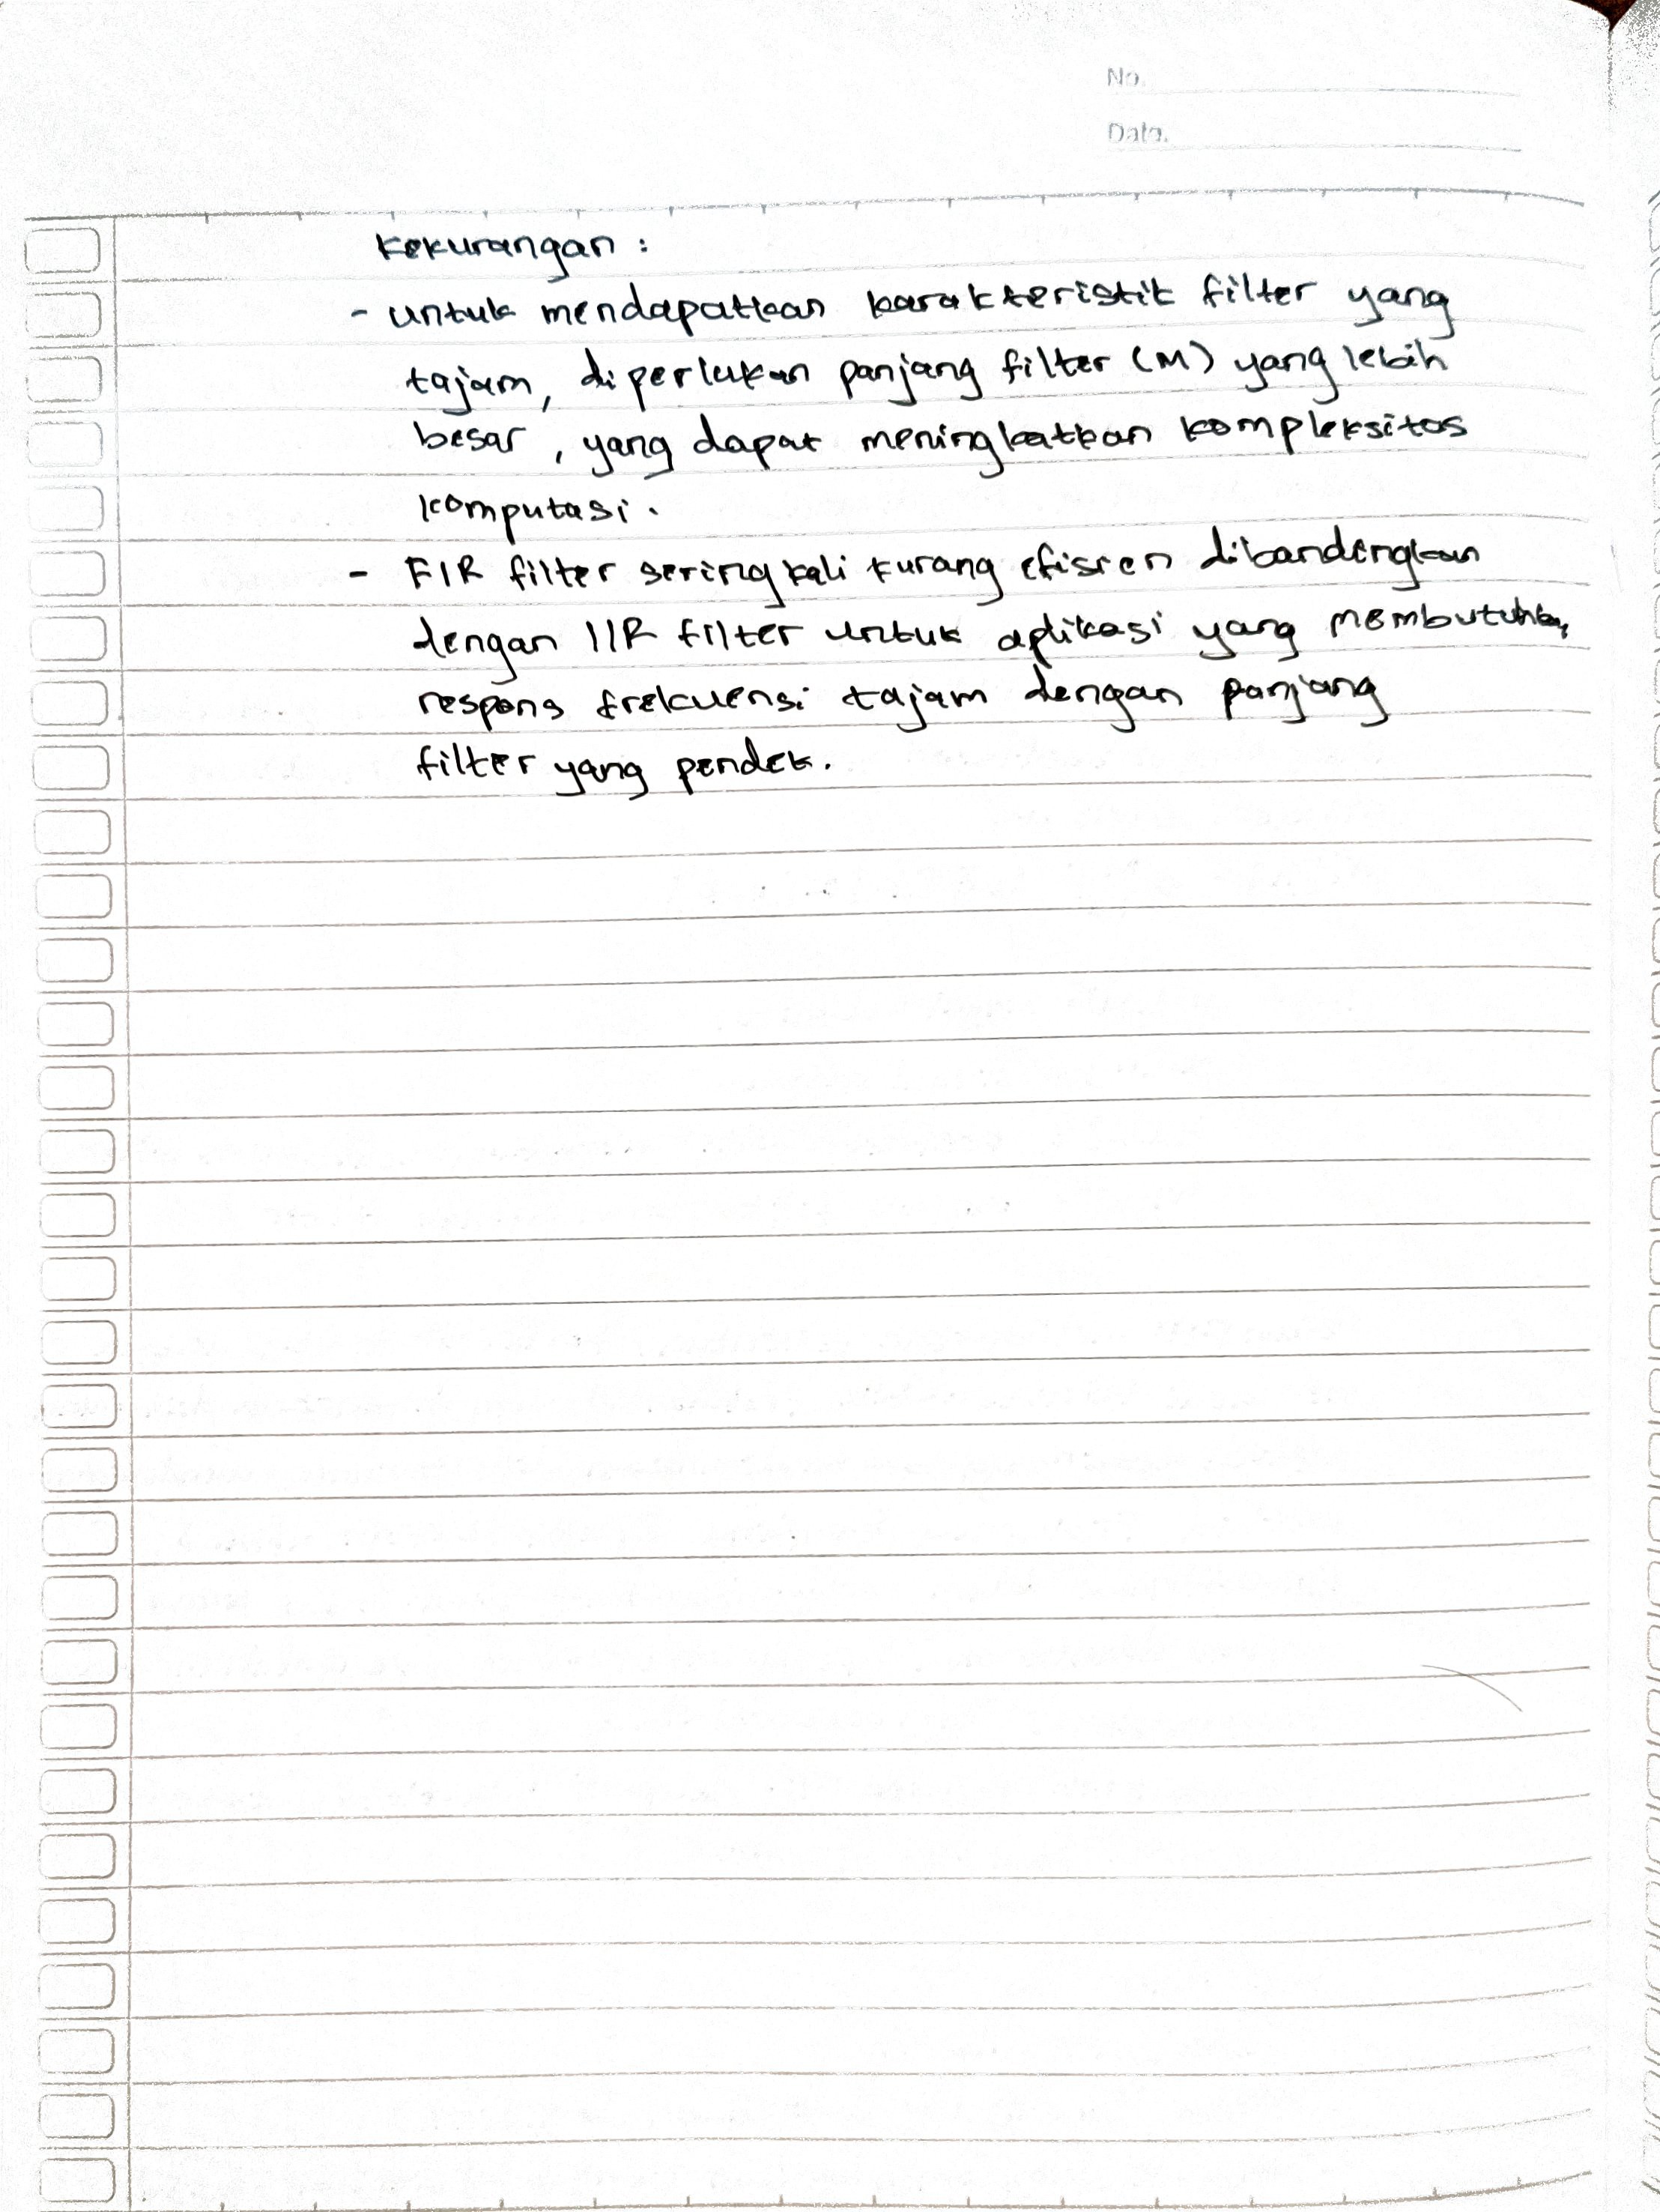 No.
Date.
Kekurangan :
- untuk mendapatkan karakteristik filter yang
tajam, diperlukan panjang filter (M) yang lebih
besar, yang dapat meningkatkan kompleksitas
komputasi.
- FIR filter seringkali kurang efisien dibandingkan
dengan IIR filter untuk aplikasi yang membutuhkan
respons frekuensi tajam dengan panjang
filter yang pendek.